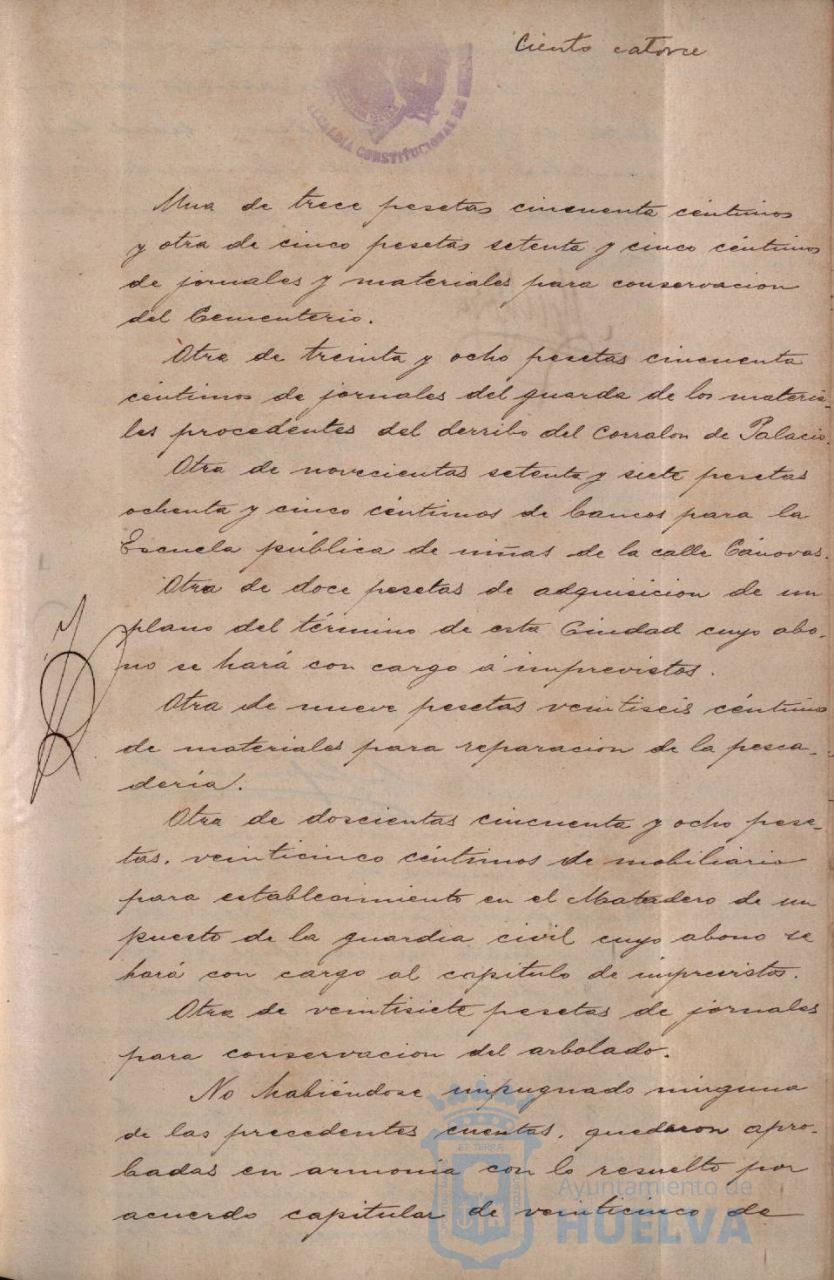 Ciento catorce
ALCALDIA CONSTITUCIONAL DE
Una de trece pesetas cincuenta céntimos
y otra de cinco pesetas setenta y cinco céntimos
de jornales y materiales para conservacion
del Cementerio.
Otra de treinta y ocho pesetas cincuenta
céntimos de jornales del guarda de los materia-
les procedentes del derribo del Corralon de Palacio.
Otra de novecientas setenta y siete pesetas
ochenta y cinco céntimos de bancos para la
Escuela pública de niñas de la calle Cánovas.
Otra de doce pesetas de adquisicion de un
plano del término de esta Ciudad cuyo abo-
no se hará con cargo á imprevistos.
Otra de nueve pesetas veintiseis céntimos
de materiales para reparacion de la pesca-
dería.
Otra de doscientas cincuenta y ocho pese-
tas, veinticinco céntimos de mobiliario
para establecimiento en el Matadero de un
puesto de la guardia civil cuyo abono se
hará con cargo al capitulo de imprevistos.
Otra de veintisiete pesetas de jornales
para conservacion del arbolado.
No habiéndose impugnado ninguna
de las precedentes cuentas, quedaron apro-
badas en armonía con lo resuelto por
acuerdo capitular de veinticinco de
Ayuntamiento de
HUELVA